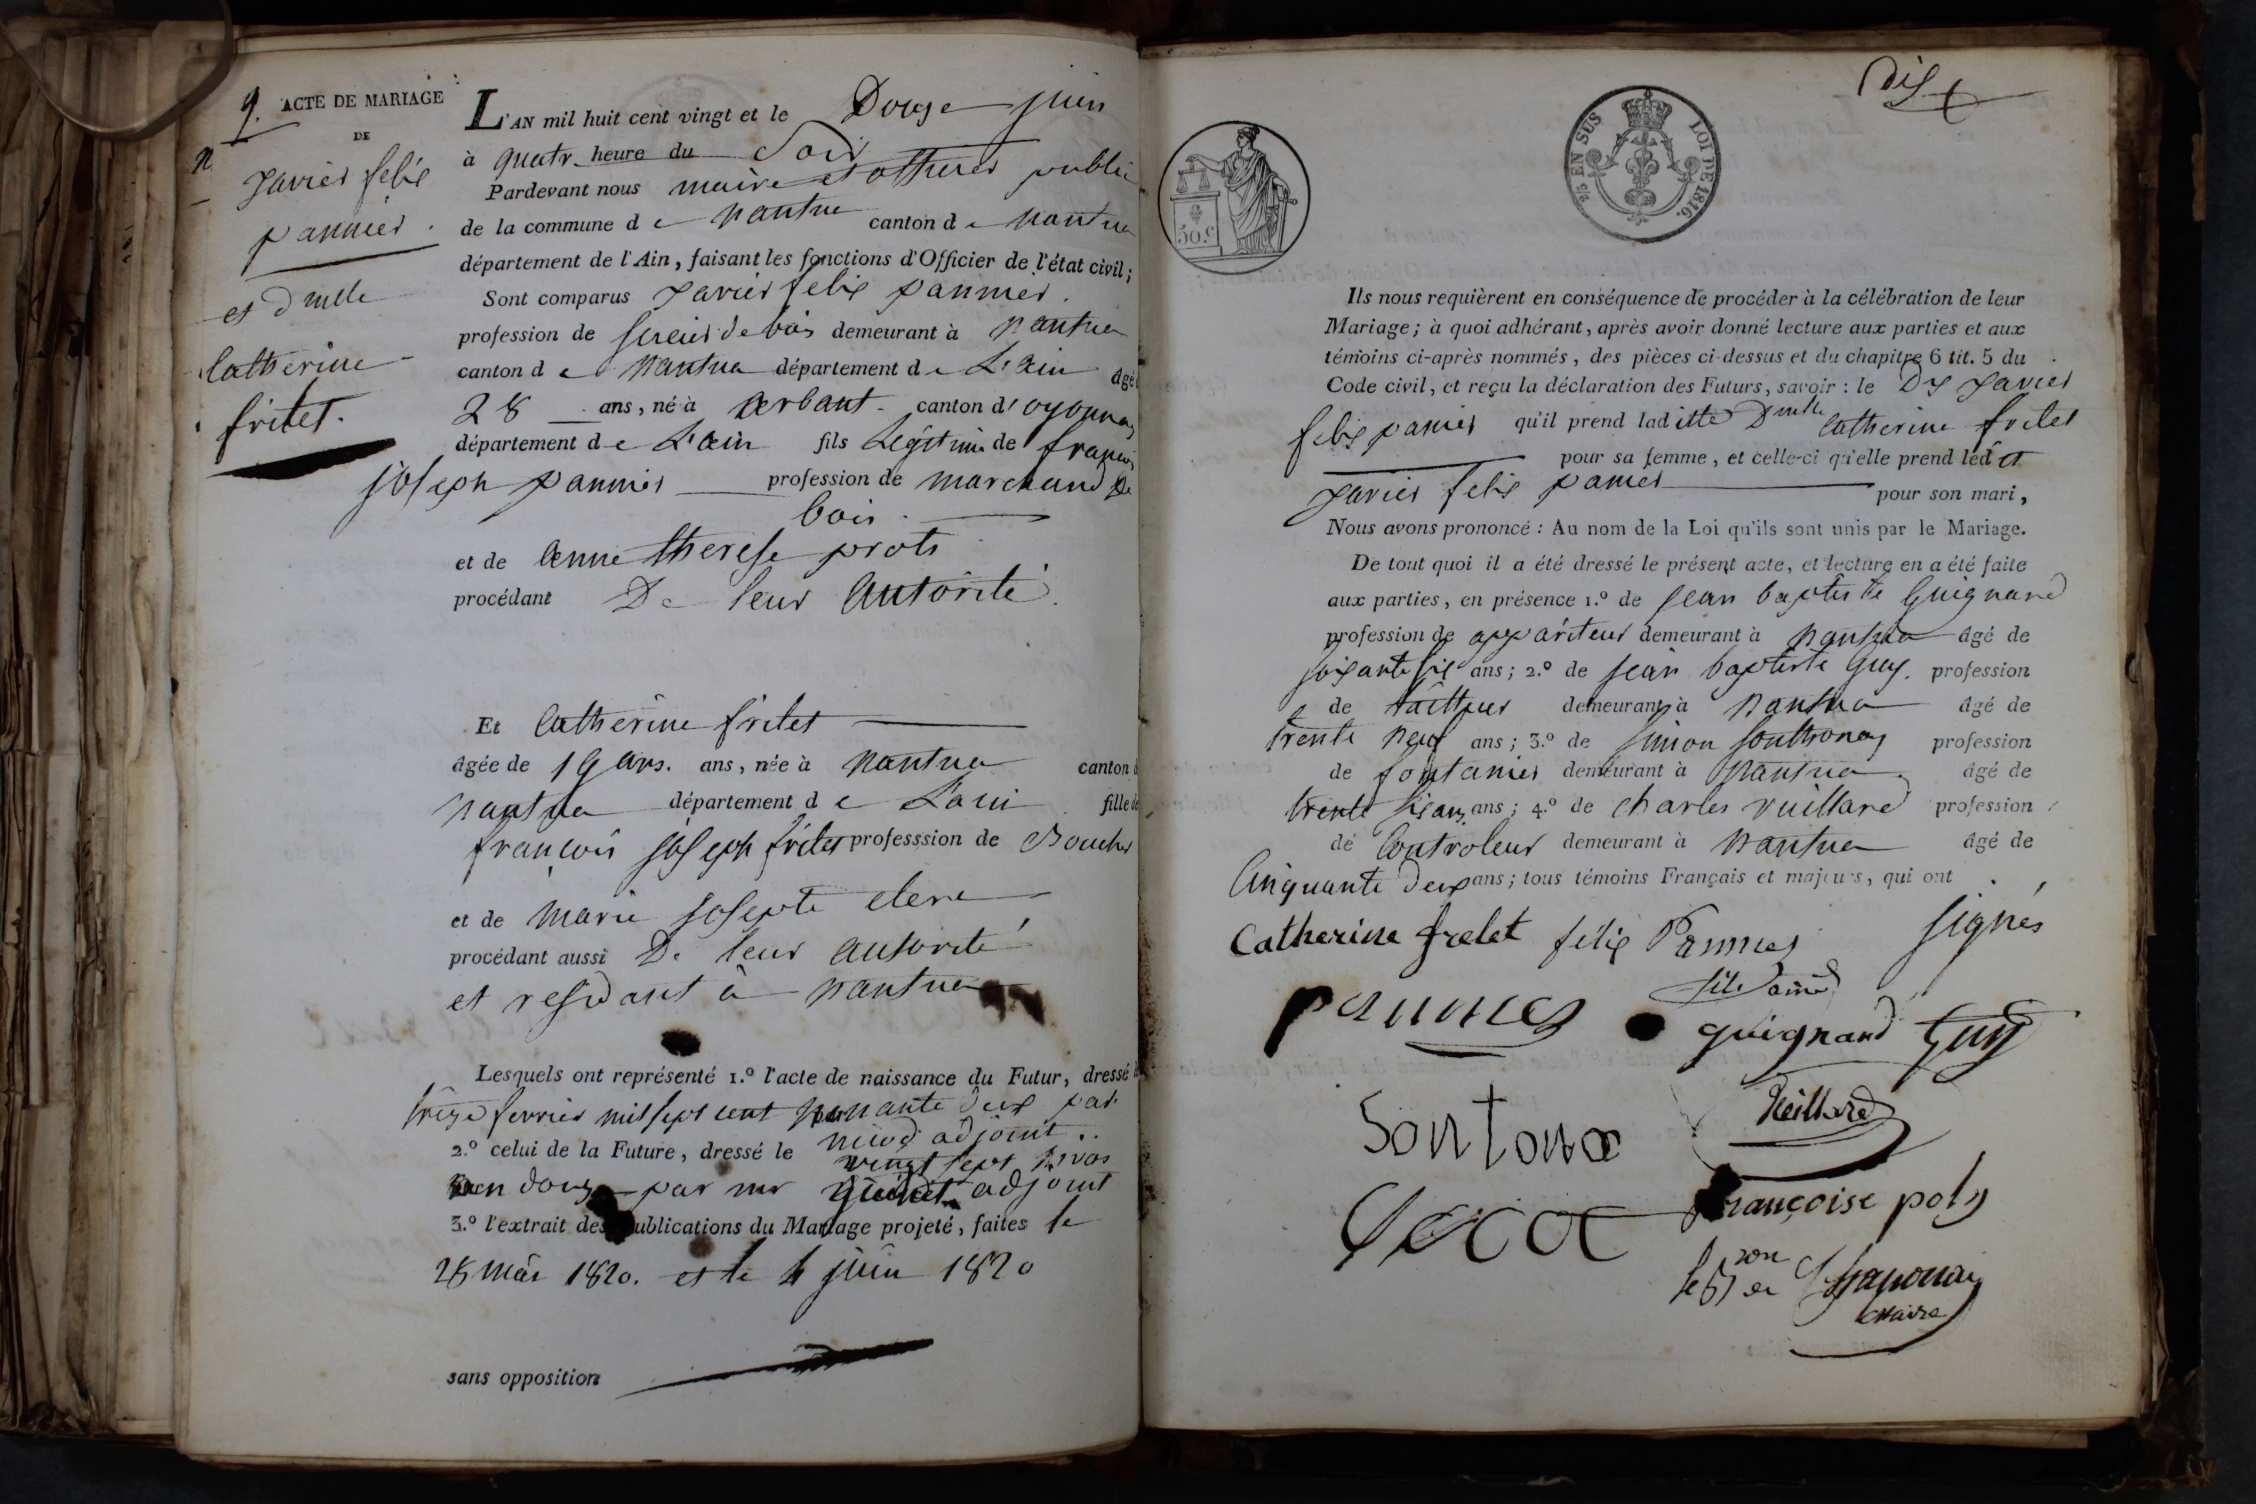 9. ACTE DE MARIAGE
DE
n
Xavier felix
pannier
et d mlle
Catherine
fritet.
L'AN mil huit cent vingt et le Douze juin
à quatr heure du Soir
Pardevant nous maire et officier public
de la commune d e nantua canton d e nantua
département de l'Ain, faisant les fonctions d'Officier de l'état civil;
Sont comparus Xavier felix pannier.
profession de scieur de bois demeurant à nantua
canton d e nantua département d e L'ain âgé
28 ans, né à arbant canton d'oyonnax
département d e L'ain fils Legitime de françois
joseph pannier profession de marchand de
bois.
et de anne therese prots
procédant De leur autorité.
Et Catherine fritet
âgée de 19 ans. ans, née à nantua canton d
nantua département d e L'ain fille de
françois joseph fritet professsion de Boucher
et de marie josepte clerc
procédant aussi De leur autorité
et residant à nantua
Lesquels ont représenté 1.º l'acte de naissance du Futur, dressé le
treize fevrier mil sept cent nonante deux par
adjoint ..
2.º celui de la Future, dressé le vingt sept
an douze par mr adjoint
3.º l'extrait des publications du Mariage projeté, faites le
28 mai 1820. et le 4 juin 1820
sans opposition
dix
50.C
2/5 EN SUS LOI DE 1816.
Ils nous requièrent en conséquence de procéder à la célébration de leur
Mariage; à quoi adhérant, après avoir donné lecture aux parties et aux
témoins ci-après nommés, des pièces ci-dessus et du chapitre 6 tit. 5 du
Code civil, et reçu la déclaration des Futurs, savoir: le Dt Xavier
felix panier qu'il prend ladite Dmelle Catherine fritet
pour sa femme, et celle-ci qu'elle prend led it
Xavier felix panier pour son mari,
Nous avons prononcé: Au nom de la Loi qu'ils sont unis par le Mariage.
De tout quoi il a été dressé le présent acte, et lecture en a été faite
aux parties, en présence 1.º de jean baptiste Guignard
profession de appariteur demeurant à nantua âgé de
soixante six ans; 2.º de jean baptiste Guy. profession
de tailleur demeurant à nantua âgé de
trente neuf ans; 3.º de simon southonax profession
de fontanier demeurant à nantua âgé de
trente six ans ans; 4.º de charles vuillard profession
de Controleur demeurant à nantua âgé de
Cinquante deux ans; tous témoins Français et majeurs, qui ont
signés
Catherine fretet felix Pannier
fils ainé
pannier guignard Guy
Sontonax Veillard
françoise poly
maire